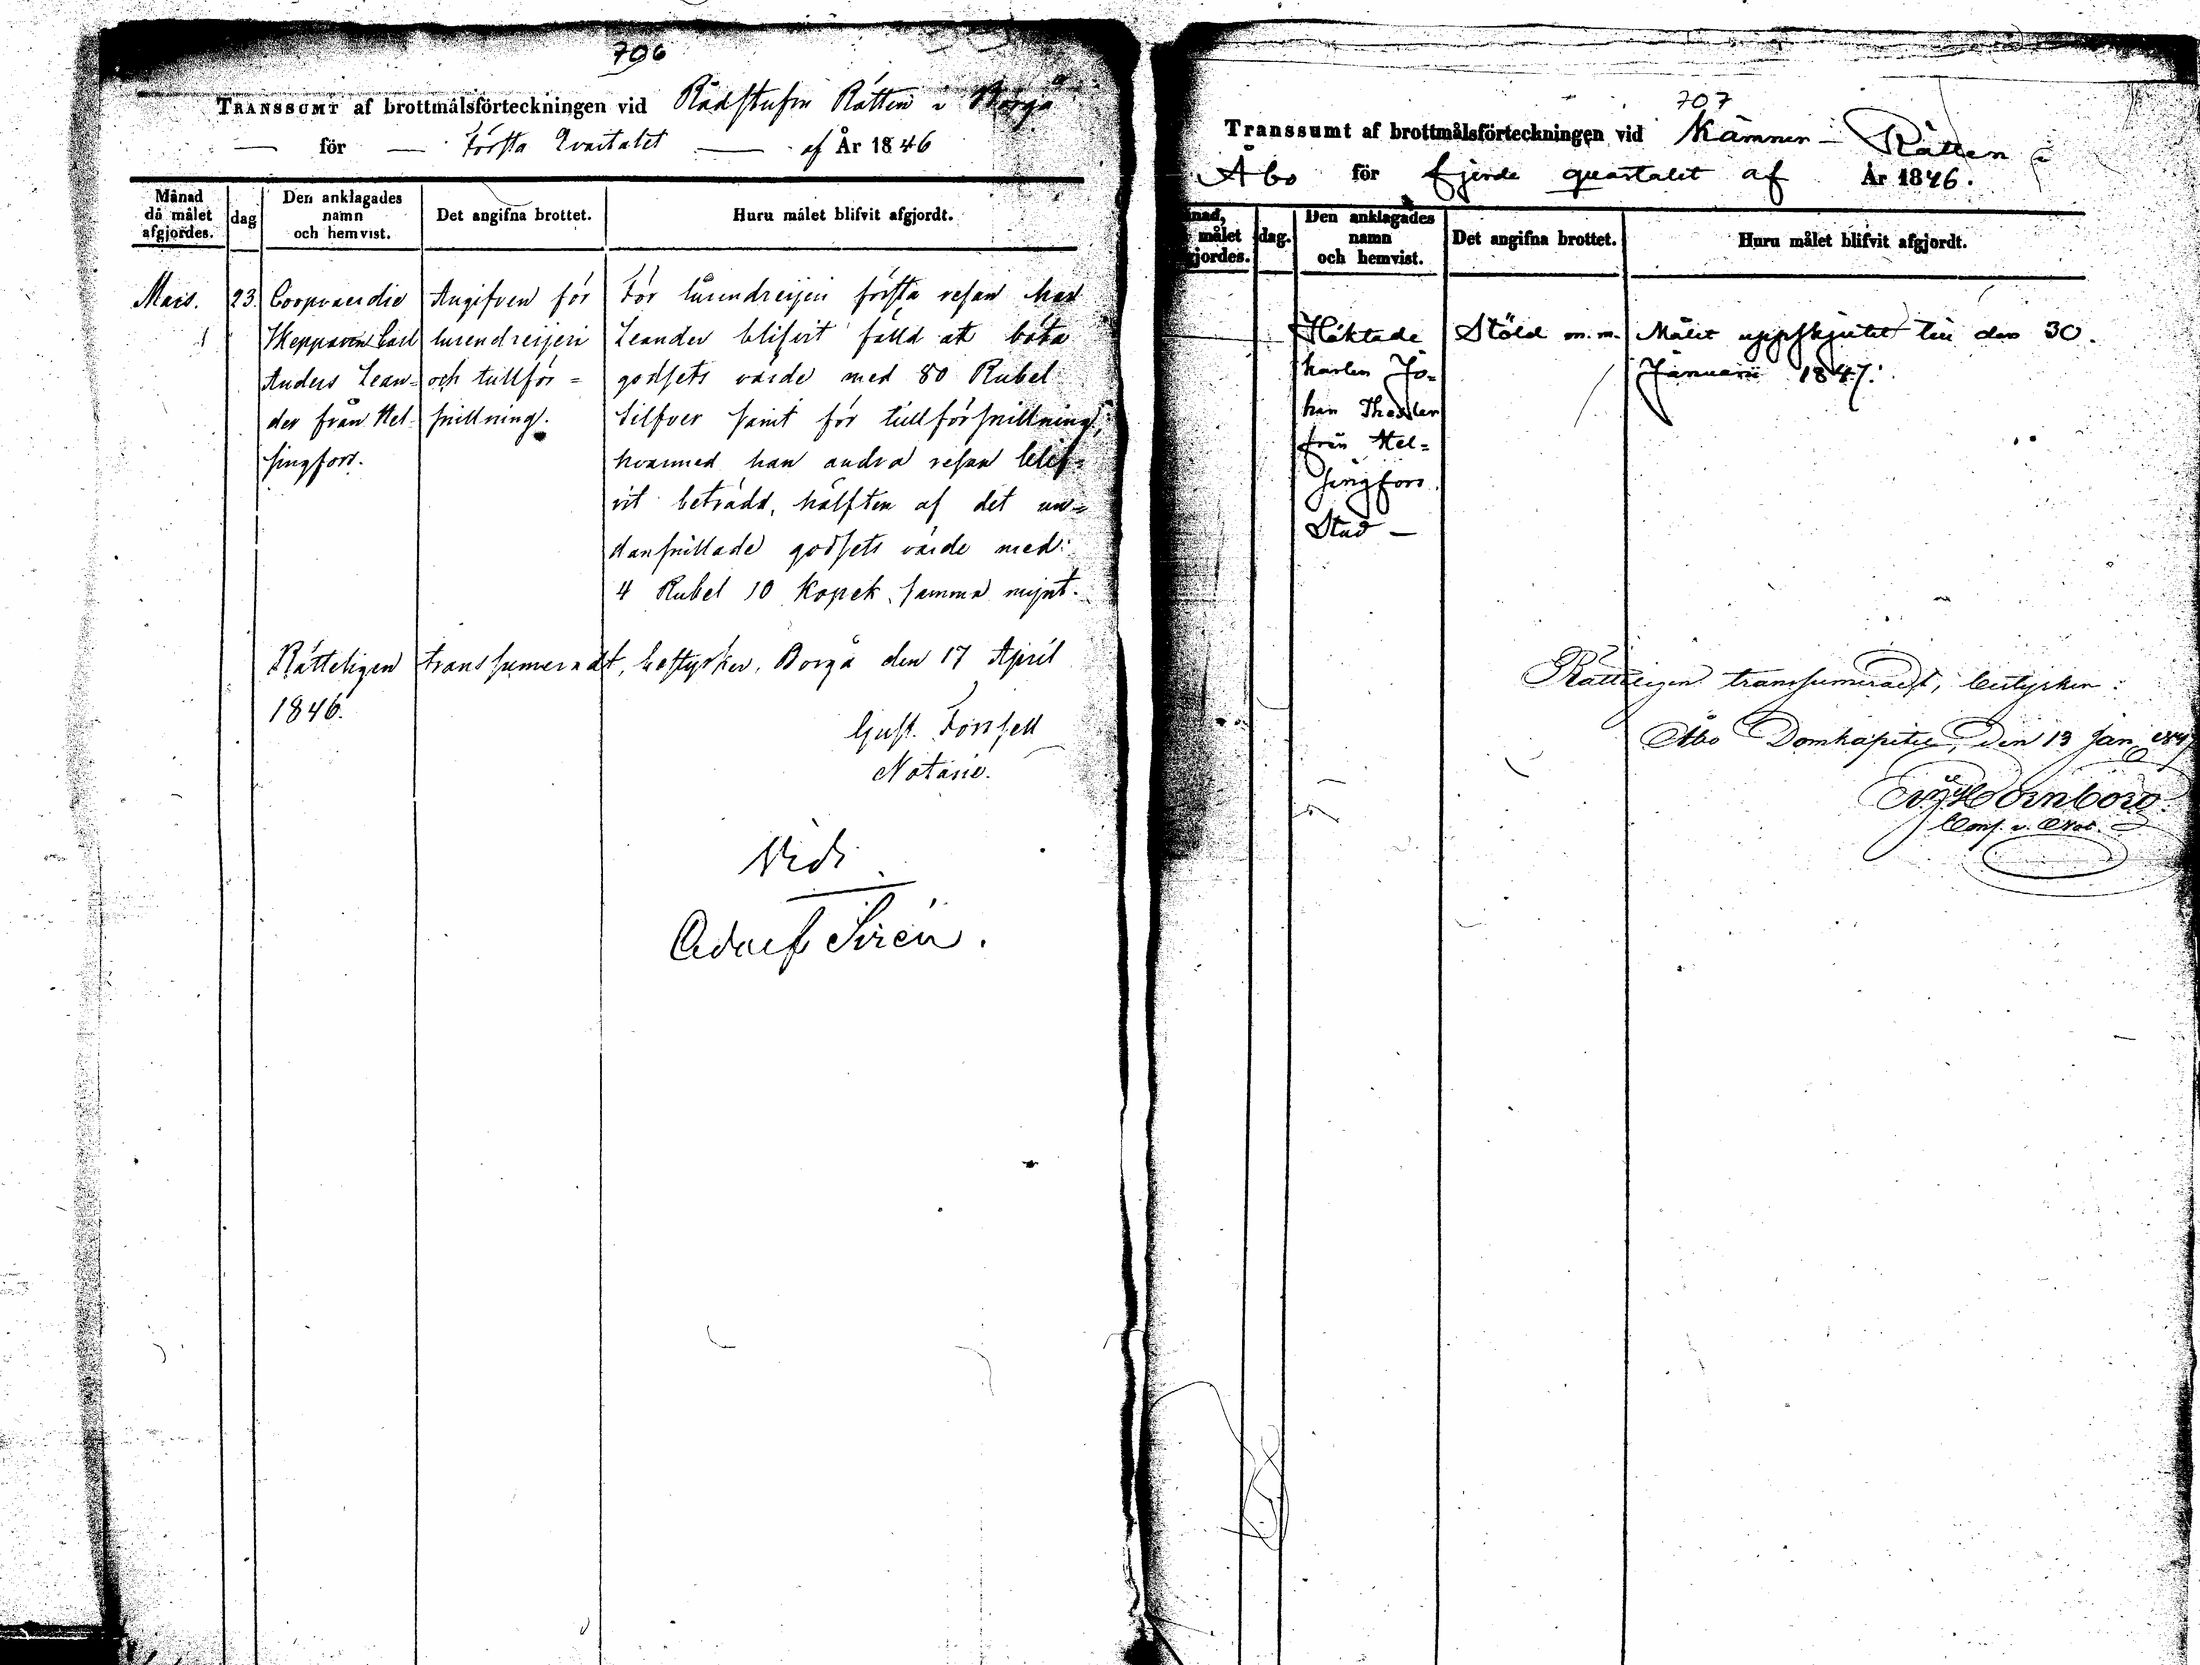 706
TRANSSUMT af brottmålsförteckningen vid Rådstufvu Rätten i Borgå
för Första Qvartalet af År 1846
Månad då målet afgjordes.
dag
Den anklagades namn och hemvist.
Det angifna brottet.
Huru målet blifvit afgjordt.
Mars.
23.
Coopvaerdie
Skepparen Carl
Anders Lean-
der från Hel-
singfors.
Angifven för
lurendreijeri
och tullför=
snillning.
För lurendreijeri första resan har
Leander blifvit fälld att böta
godsets värde med 80 Rubel
Silfver samt för tullförsnillning,
hvarmed han andra resan blif-
vit beträdd, hälften af det un-
dansnillade godsets värde med
4 Rubel 10 Kopek samma mynt.
Rätteligen transsumeradt, bestyrker, Borgå den 17 April
1846.
Gust. Forssell
Notarie.
Vidi
Adolf Sirén.
707
Transsumt af brottmålsförteckningen vid Kämners-Rätten i
Åbo för fjerde quartalet af År 1846.
nad,
målet
gjordes.
dag.
Den anklagades namn och hemvist.
Det angifna brottet.
Huru målet blifvit afgjordt.
Häktade
karlen Jo-
han Thessler
från Hel=
singfors
Stad —
Stöld m.m.
Målet uppskjutet till den 30.
Januarii 1847.
Rätteligen transsumeradt, bestyrker:
Åbo Domkapitel, den 13 Jan 1847
Hornborg.
Cons. v. Not.